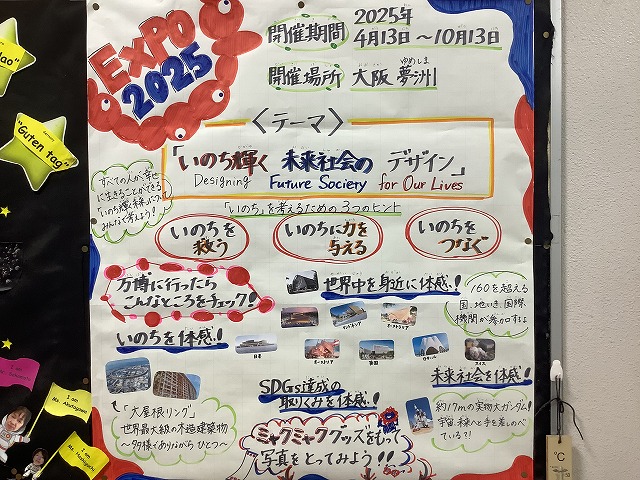 EXPO
2025
開催期間
2025年
4月13日～10月13日
開催場所 大阪 夢洲
ゆめしま
〈テーマ〉
「いのち輝く 未来社会の デザイン」
Designing Future Society for Our Lives
すべての人が幸せ
に生きることができる
みんなで考えよう！
「いのち」を考えるための3つのヒント
いのちを
救う
いのちに力を
与える
いのちを
つなぐ
万博に行ったら
こんなところをチェック！
世界中を身近に体感！
160を超える
国、地いき、国際
機関が参加するよ
いのちを体感！
日本
SDGs達成の
取りくみを体感！
未来社会を体感！
「大屋根リング」
世界最大級の木造建築物
～多様でありながら ひとつ～
約17mの実物大ガンダム！
宇宙、未来へと手を差しのべ
ている？！
ミャクミャクグッズをもって
写真をとってみよう！！
"Guten tag"
I am
I am
I am
℃